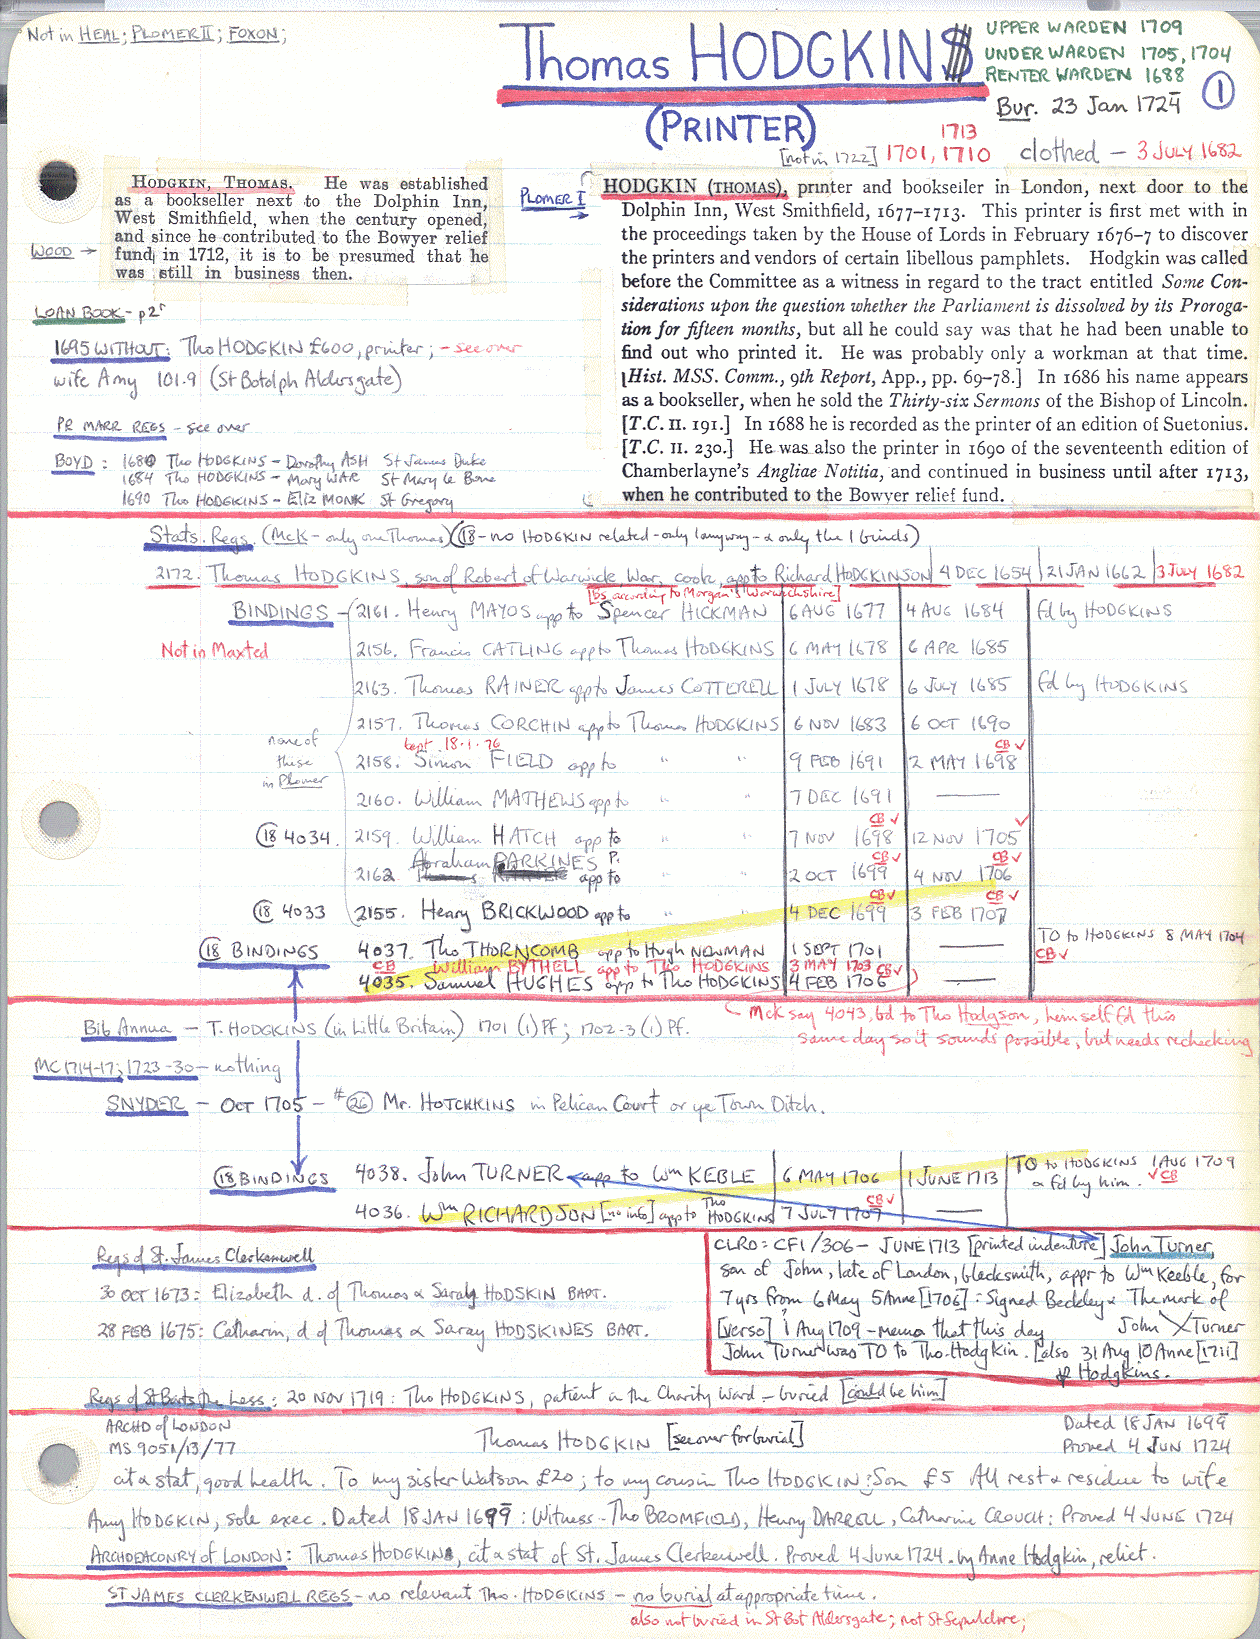 Not in HEAL; PLOMER II; FOXON;
Thomas HODGKINS
(PRINTER)
UPPER WARDEN 1709
UNDER WARDEN 1705, 1704
RENTER WARDEN 1688
1
Bur. 23 Jan 1724
1713
[not in 1722] 1701, 1710 clothed — 3 JULY 1682
WOOD →
HODGKIN, THOMAS. He was established
as a bookseller next to the Dolphin Inn,
West Smithfield, when the century opened,
and since he contributed to the Bowyer relief
fund in 1712, it is to be presumed that he
was still in business then.
PLOMER I
HODGKIN (THOMAS), printer and bookseller in London, next door to the
Dolphin Inn, West Smithfield, 1677-1713. This printer is first met with in
the proceedings taken by the House of Lords in February 1676-7 to discover
the printers and vendors of certain libellous pamphlets. Hodgkin was called
before the Committee as a witness in regard to the tract entitled Some Con-
siderations upon the question whether the Parliament is dissolved by its Proroga-
tion for fifteen months, but all he could say was that he had been unable to
find out who printed it. He was probably only a workman at that time.
[Hist. MSS. Comm., 9th Report, App., pp. 69-78.] In 1686 his name appears
as a bookseller, when he sold the Thirty-six Sermons of the Bishop of Lincoln.
[T.C. II. 191.] In 1688 he is recorded as the printer of an edition of Suetonius.
[T.C. II. 230.] He was also the printer in 1690 of the seventeenth edition of
Chamberlayne's Angliae Notitia, and continued in business until after 1713,
when he contributed to the Bowyer relief fund.
LOAN BOOK - p2r
1695 WITHOUT: Tho HODGKIN £600, printer; - see over
wife Amy 101.9 (St Botolph Aldersgate)
PR MARR REGS - see over
BOYD: 1680 Tho HODGKINS - Dorothy ASH St James Duke
1684 Tho HODGKINS - Mary WAR St Mary le Bone
1690 Tho HODGKINS - Eliz MONK St Gregory
Stats. Regs. (McK - only one Thomas) (18 - no HODGKIN related - only 1 anyway - & only the 1 binds)
2172. Thomas HODGKINS, son of Robert of Warwick, War, cook, app to Richard HODGKINSON 4 DEC 1654 21 JAN 1662 3 JULY 1682
[bs according to Morgan's Warwickshire]
BINDINGS - 2161. Henry MAYOS app to Spencer HICKMAN 6 AUG 1677 4 AUG 1684 fd by HODGKINS
Not in Maxted
2156. Francis CATLING app to Thomas HODGKINS 6 MAY 1678 6 APR 1685
2163. Thomas RAINER app to James COTTERELL 1 JULY 1678 6 JULY 1685 fd by HODGKINS
2157. Thomas CORCHIN app to Thomas HODGKINS 6 NOV 1683 6 OCT 1690
none of these in Plomer
kept 18.1.76
CB ✓
2158. Simon FIELD app to " " 9 FEB 1691 2 MAY 1698
2160. William MATHEWS app to " " 7 DEC 1691 ——
CB ✓ ✓
18 4034. 2159. William HATCH app to " " 7 NOV 1698 12 NOV 1705
CB ✓ CB ✓
2162 Abraham PARKINES P. app to 2 OCT 1699 4 NOV 1706
CB ✓ CB ✓
18 4033 2155. Henry BRICKWOOD app to " " 4 DEC 1699 3 FEB 1707
18 BINDINGS 4037. Tho THORNCOMB app to Hugh NEWMAN 1 SEPT 1701 —— TO to HODGKINS 8 MAY 1704
CB ✓
CB William BYTHELL app to Tho HODGKINS 3 MAY 1703 CB ✓
4035. Samuel HUGHES app to Tho HODGKINS 4 FEB 1706 ——
McK say 4043, bd to Tho Hodgson, himself fd this
same day so it sounds possible, but needs rechecking
Bib Annua — T. HODGKINS (in Little Britain) 1701 (1) Pf; 1702-3 (1) Pf.
MC 1714-17; 1723-30 - nothing
SNYDER - OCT 1705 - #26 Mr. HOTCHKINS in Pelican Court or ye Town Ditch.
18 BINDINGS 4038. John TURNER app to Wm KEBLE 6 MAY 1706 1 JUNE 1713 TO to HODGKINS 1 AUG 1709
& fd by him. ✓ CB
CB ✓
4036. Wm RICHARDSON [no info] app to Tho HODGKINS 7 JULY 1707 ——
Regs of St. James Clerkenwell
30 OCT 1673: Elizabeth d. of Thomas & Sarah HODSKIN BAPT.
28 FEB 1675: Catharin, d of Thomas & Saray HODSKINES BAPT.
CLRO: CF1/306 - JUNE 1713 [printed indenture] John Turner,
son of John, late of London, blacksmith, appr to Wm Keeble, for
7 yrs from 6 May 5 Anne [1706]: Signed Beckley & The mark of
John X Turner
[verso] 1 Aug 1709 - memo that this day
John Turner was TO to Tho. Hodgkin. [also 31 Aug 10 Anne [1711]
Hodgkins.
Regs of St Barts the Less: 20 NOV 1719: Tho HODGKINS, patient in the Charity Ward - buried [could be him]
ARCHD of LONDON
MS 9051/13/77
Thomas HODGKIN [see over for burial]
Dated 18 JAN 1699
Proved 4 JUN 1724
cit & stat, good health. To my sister Watson £20; to my cousin Tho HODGKIN: Son £5 All rest & residue to wife
Amy HODGKIN, sole exec. Dated 18 JAN 1699: Witness - Tho BROMFIELD, Henry DARRELL, Catharine CROUCH: Proved 4 JUNE 1724
ARCHDEACONRY of LONDON: Thomas HODGKINS, cit & stat of St. James Clerkenwell. Proved 4 June 1724. by Anne Hodgkin, relict.
ST JAMES CLERKENWELL REGS - no relevant Tho. HODGKINS - no burial at appropriate time.
also not buried in St Bot Aldersgate; not St Sepulchre;